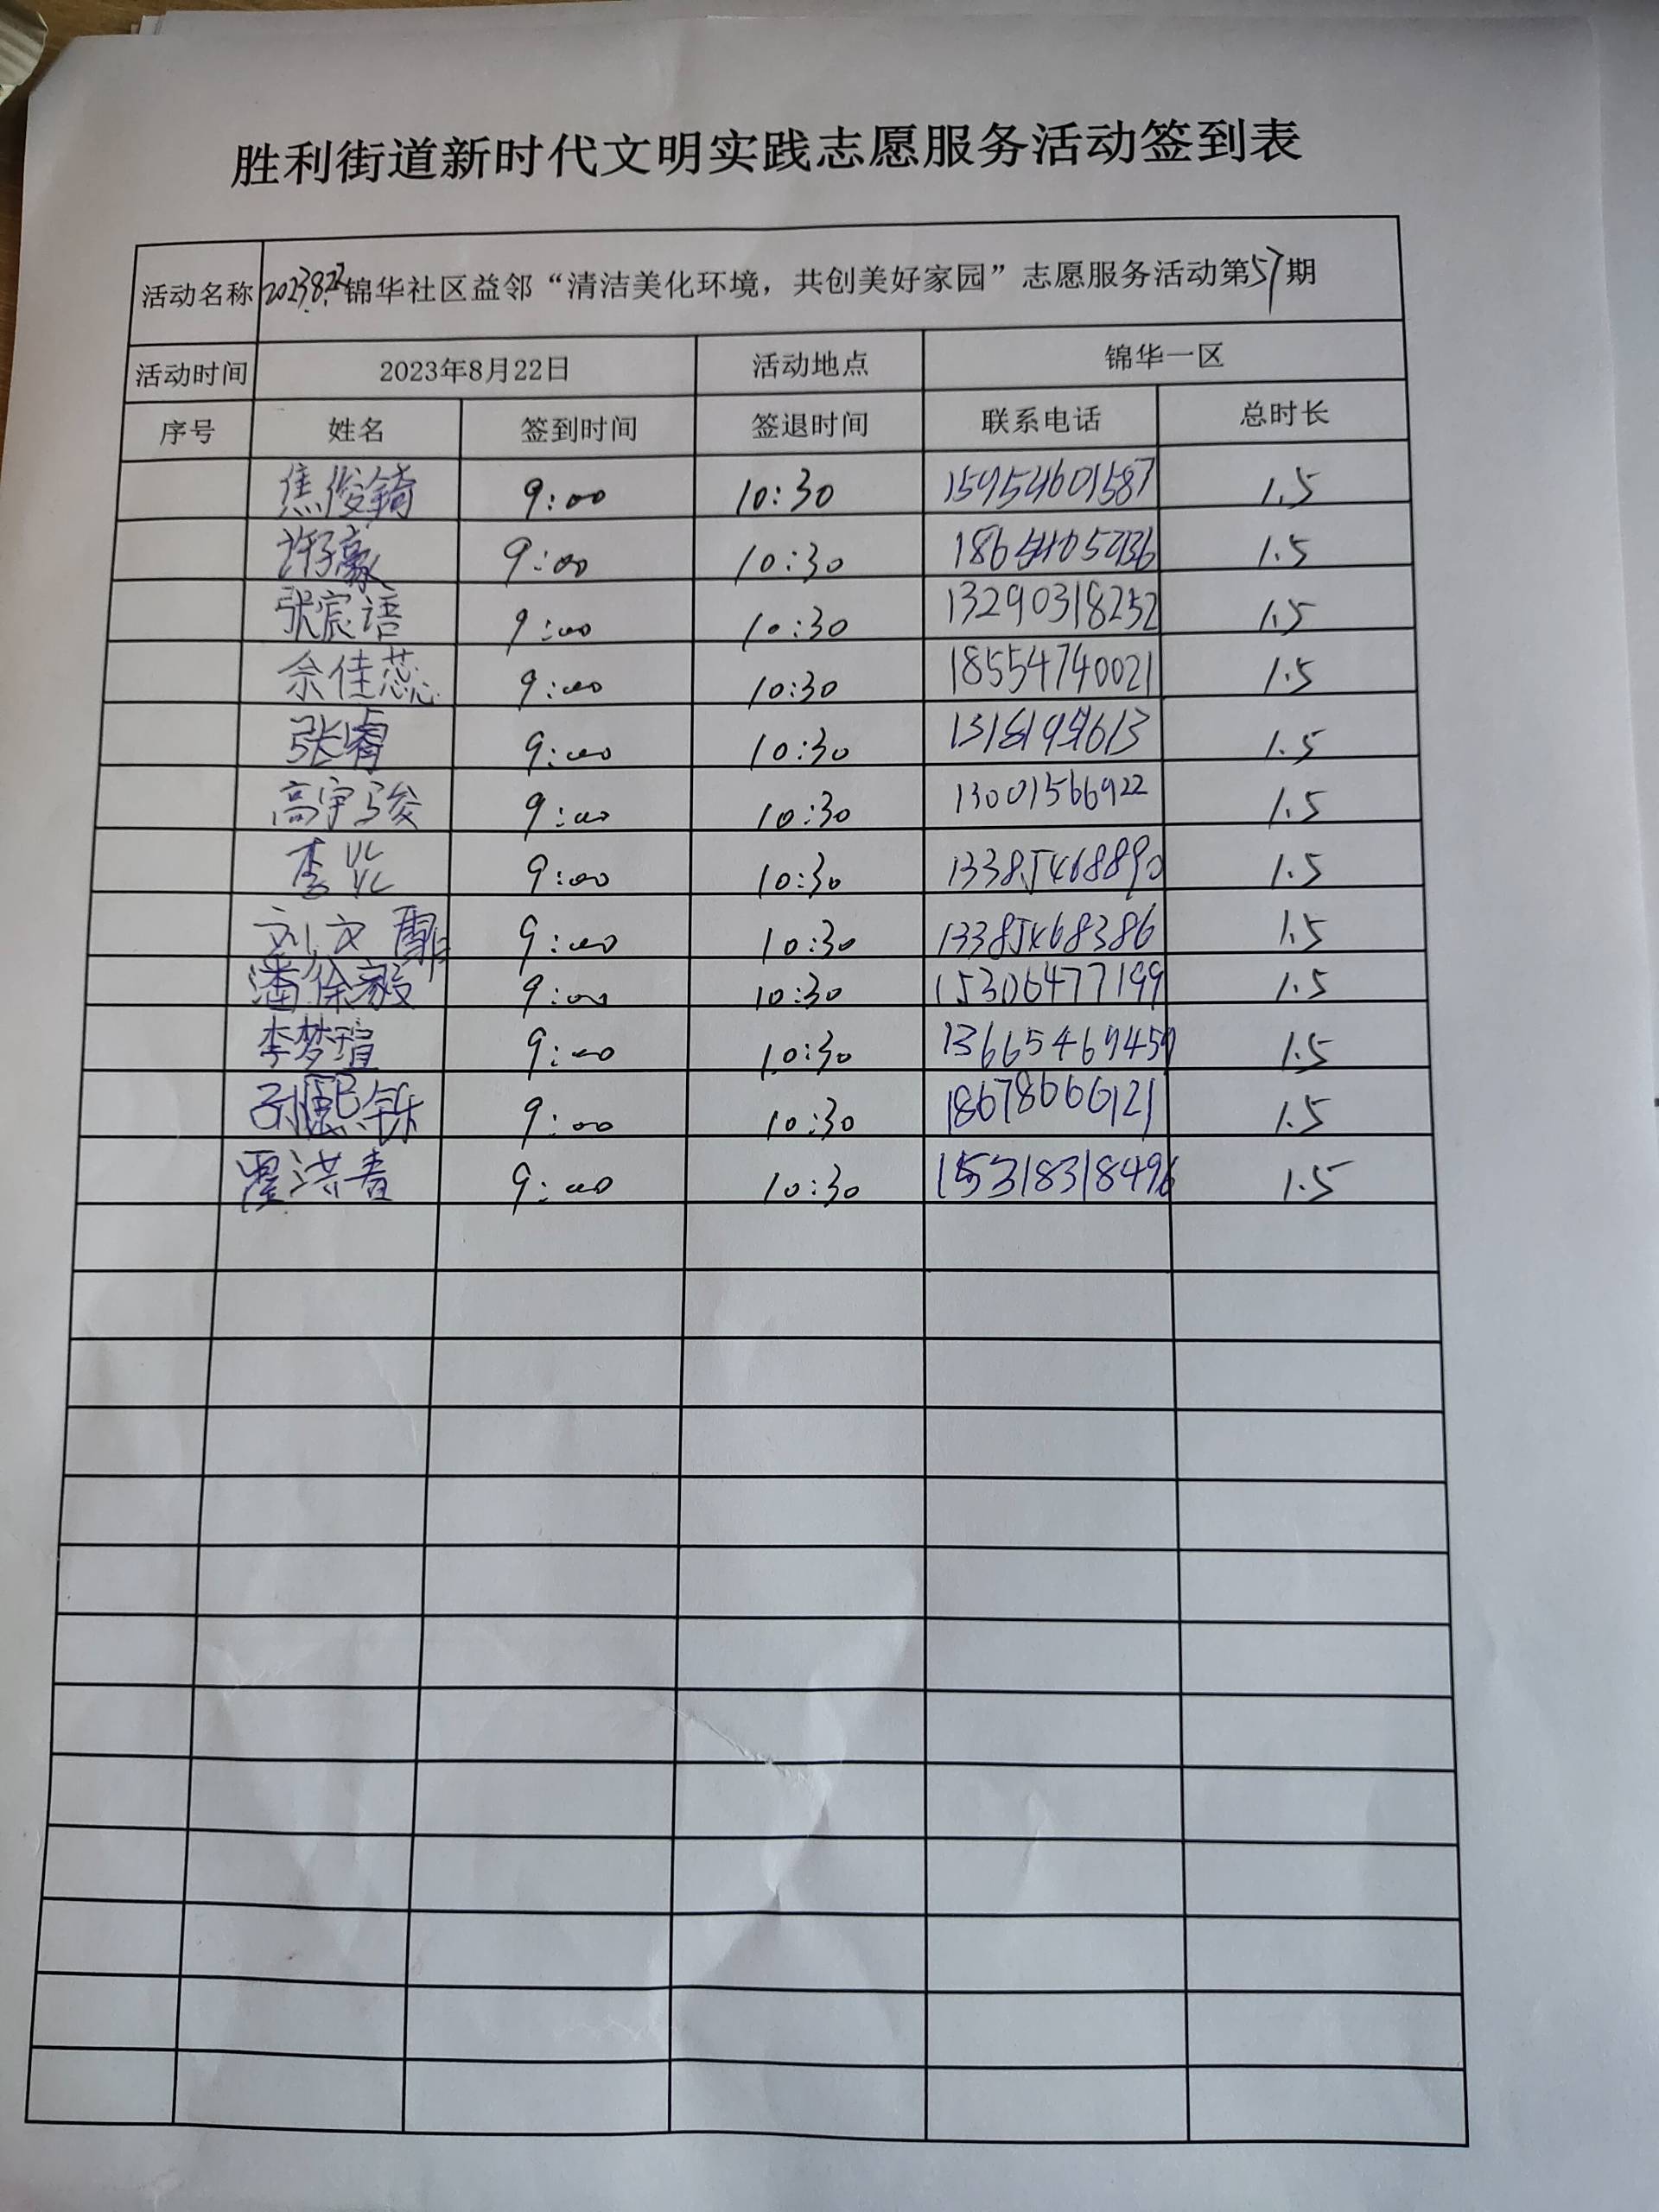 胜利街道新时代文明实践志愿服务活动签到表
活动名称 2023.8.22锦华社区益邻“清洁美化环境，共创美好家园”志愿服务活动第57期
活动时间 2023年8月22日 活动地点 锦华一区
序号 姓名 签到时间 签退时间 联系电话 总时长
焦俊锜 9:00 10:30 15954601587 1.5
9:00 10:30 1.5
张宸语 9:00 10:30 13290318252 1.5
佘佳蕊 9:00 10:30 18554740021 1.5
张睿 9:00 10:30 1.5
高宇骏 9:00 10:30 13001566922 1.5
9:00 10:30 13385468890 1.5
刘文霏 9:00 10:30 13385468386 1.5
潘徐毅 9:00 10:30 15306477199 1.5
李梦瑄 9:00 10:30 13665469459 1.5
孙熙铄 9:00 10:30 18678666121 1.5
9:00 10:30 15318318496 1.5